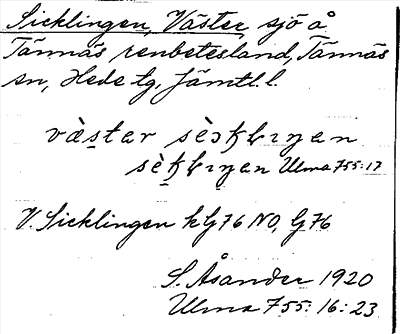 Sicklingen, Väster sjö å
Tännäs renbetesland, Tännäs
sn, Hede tg, Jämtl. l.
Ulma 755:17
V. Sicklingen kG76 NO, G76
S. Åsander 1920
Ulma 755:16:23